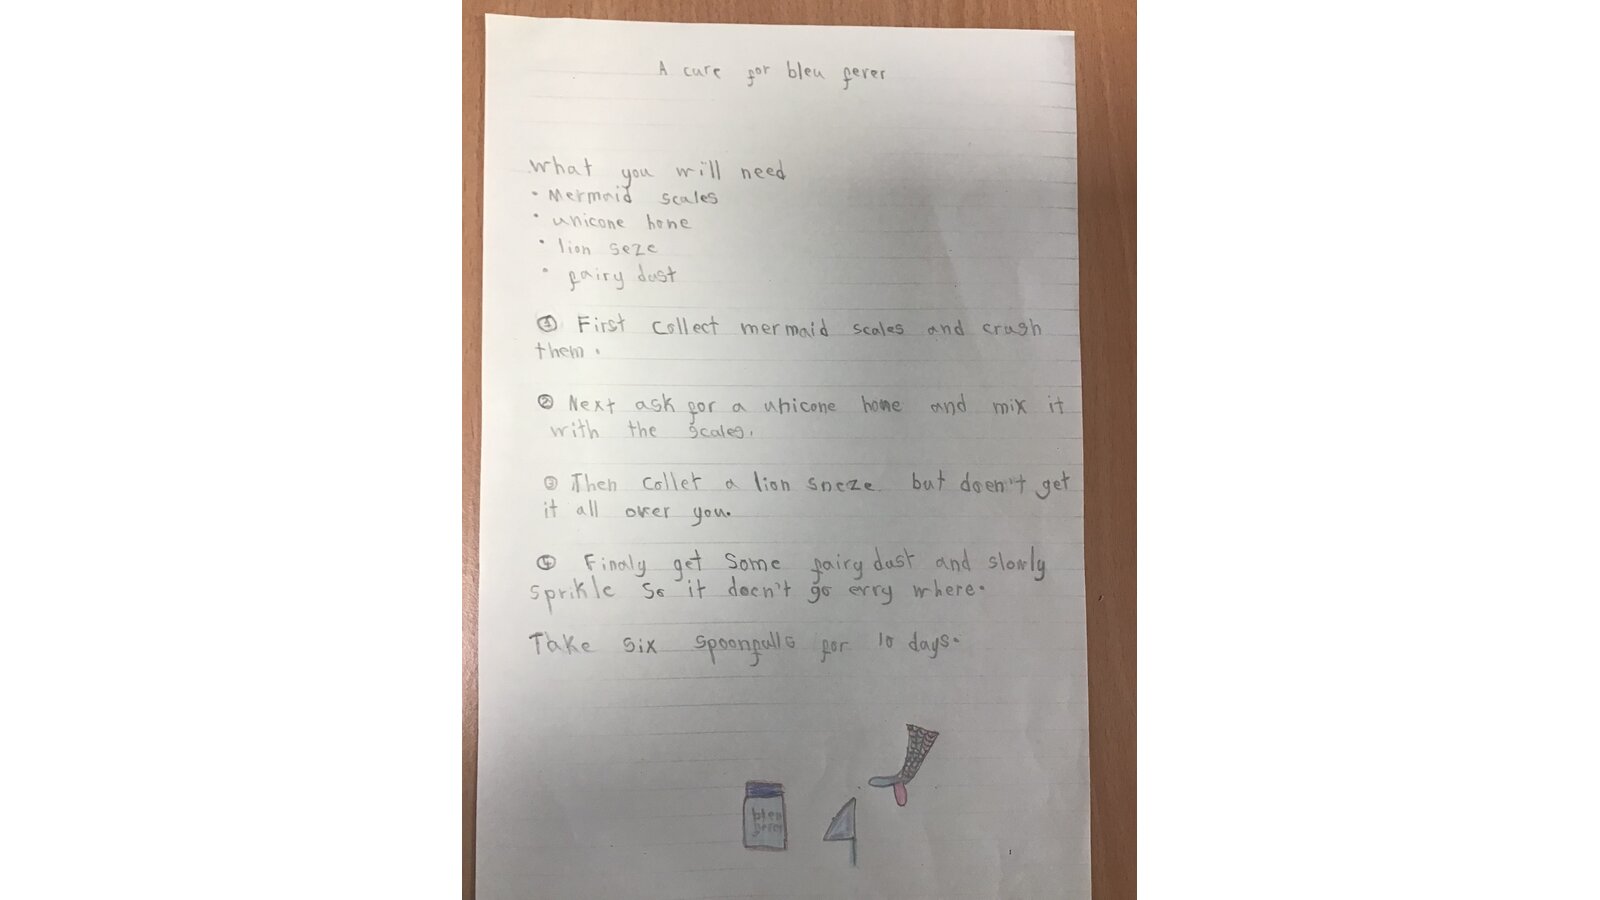 A cure for bleu fever
What you will need
• Mermaid scales
• unicone hone
• lion seze
• fairy dust
① First collect mermaid scales and crush
them.
② Next ask for a unicone hone and mix it
with the scales.
③ Then collet a lion sneze but doen't get
it all over you.
④ Finaly get some fairy dust and slowly
sprikle so it doen't go erry where.
Take six spoonfulls for 10 days.
bleu
fever